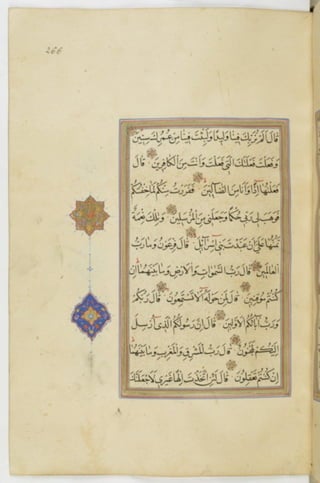 266
قال الم نربك فينا وليدا ولبثت فينا من عمرك سنين
وفعلت فعلتك التي فعلت وانت من الكافرين قال
فعلتها اذا وانا من الضالين ففررت منكم لما خفتكم
فوهب لي ربي حكما وجعلني من المرسلين وتلك نعمة
تمنها علي ان عبدت بني اسرائيل قال فرعون وما رب
العالمين قال رب السموات والارض وما بينهما ان
كنتم موقنين قال لمن حوله الا تستمعون قال ربكم
ورب آبائكم الاولين قال ان رسولكم الذي ارسل
اليكم لمجنون قال رب المشرق والمغرب وما بينهما
ان كنتم تعقلون قال لئن اتخذت الها غيري لاجعلنك